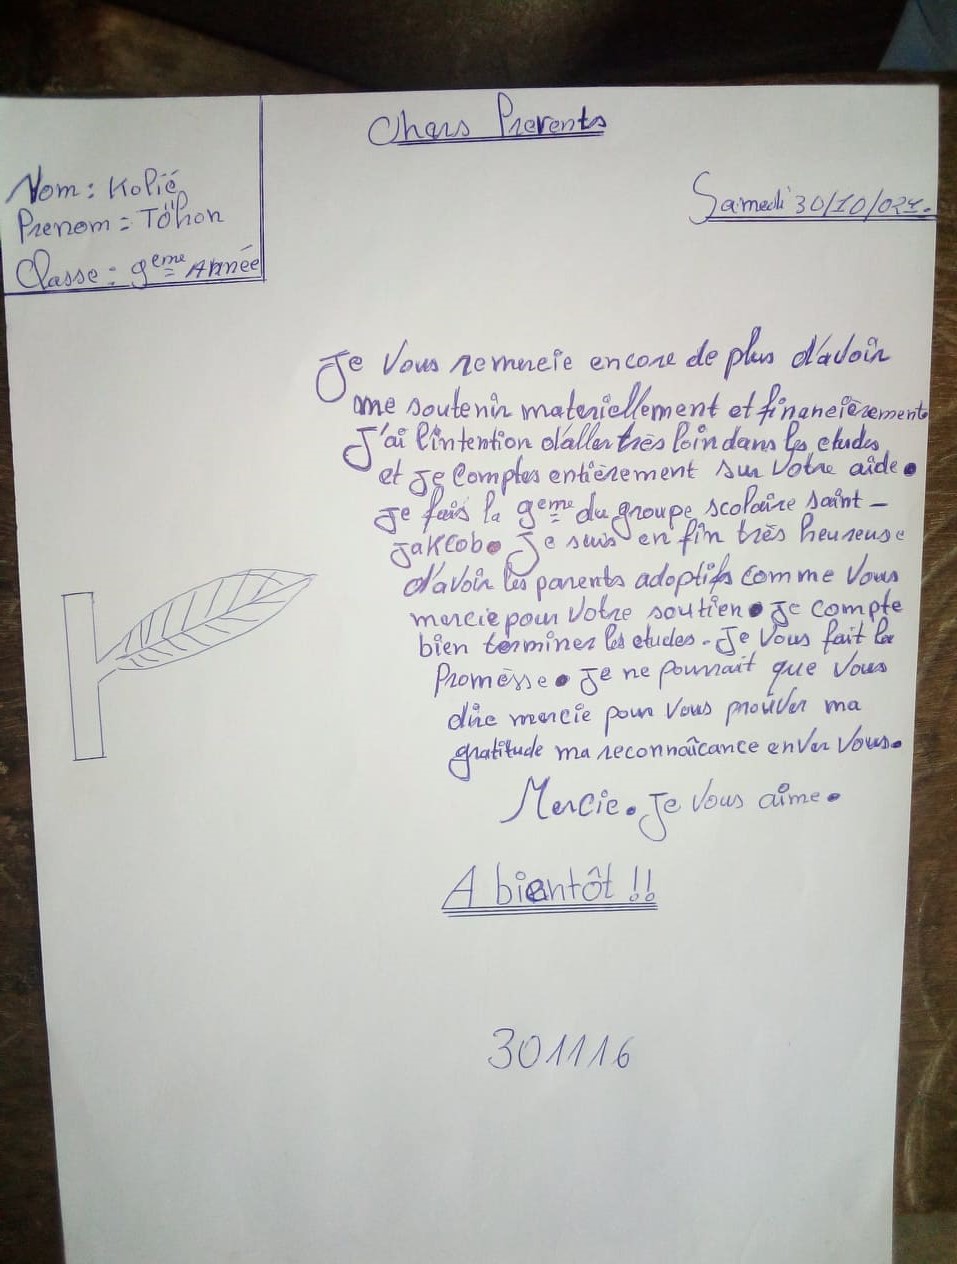 Chers Parents
Nom : Kolié
Prenom = Töhon
Classe : 9ème Année
Samedi 30/10/021.
Je Vous remercie encore de plus d'avoir
me soutenir materiellement et financièrement
J'ai l'intention d'aller très loin dans les etudes
et je Comptes entièrement sur Votre aide.
Je fais la 9ème du groupe scolaire saint-
jakcob. Je suis en fin très heureuse
d'avoir les parents adoptifs comme Vous
mercie pour Votre soutien. Je compte
bien terminer les etudes. Je Vous fait la
Promèsse. Je ne pourrait que Vous
dire mercie pour Vous prouver ma
gratitude ma reconnaîcance enver Vous.
Mercie. Je Vous aime.
A bientôt !!
301116